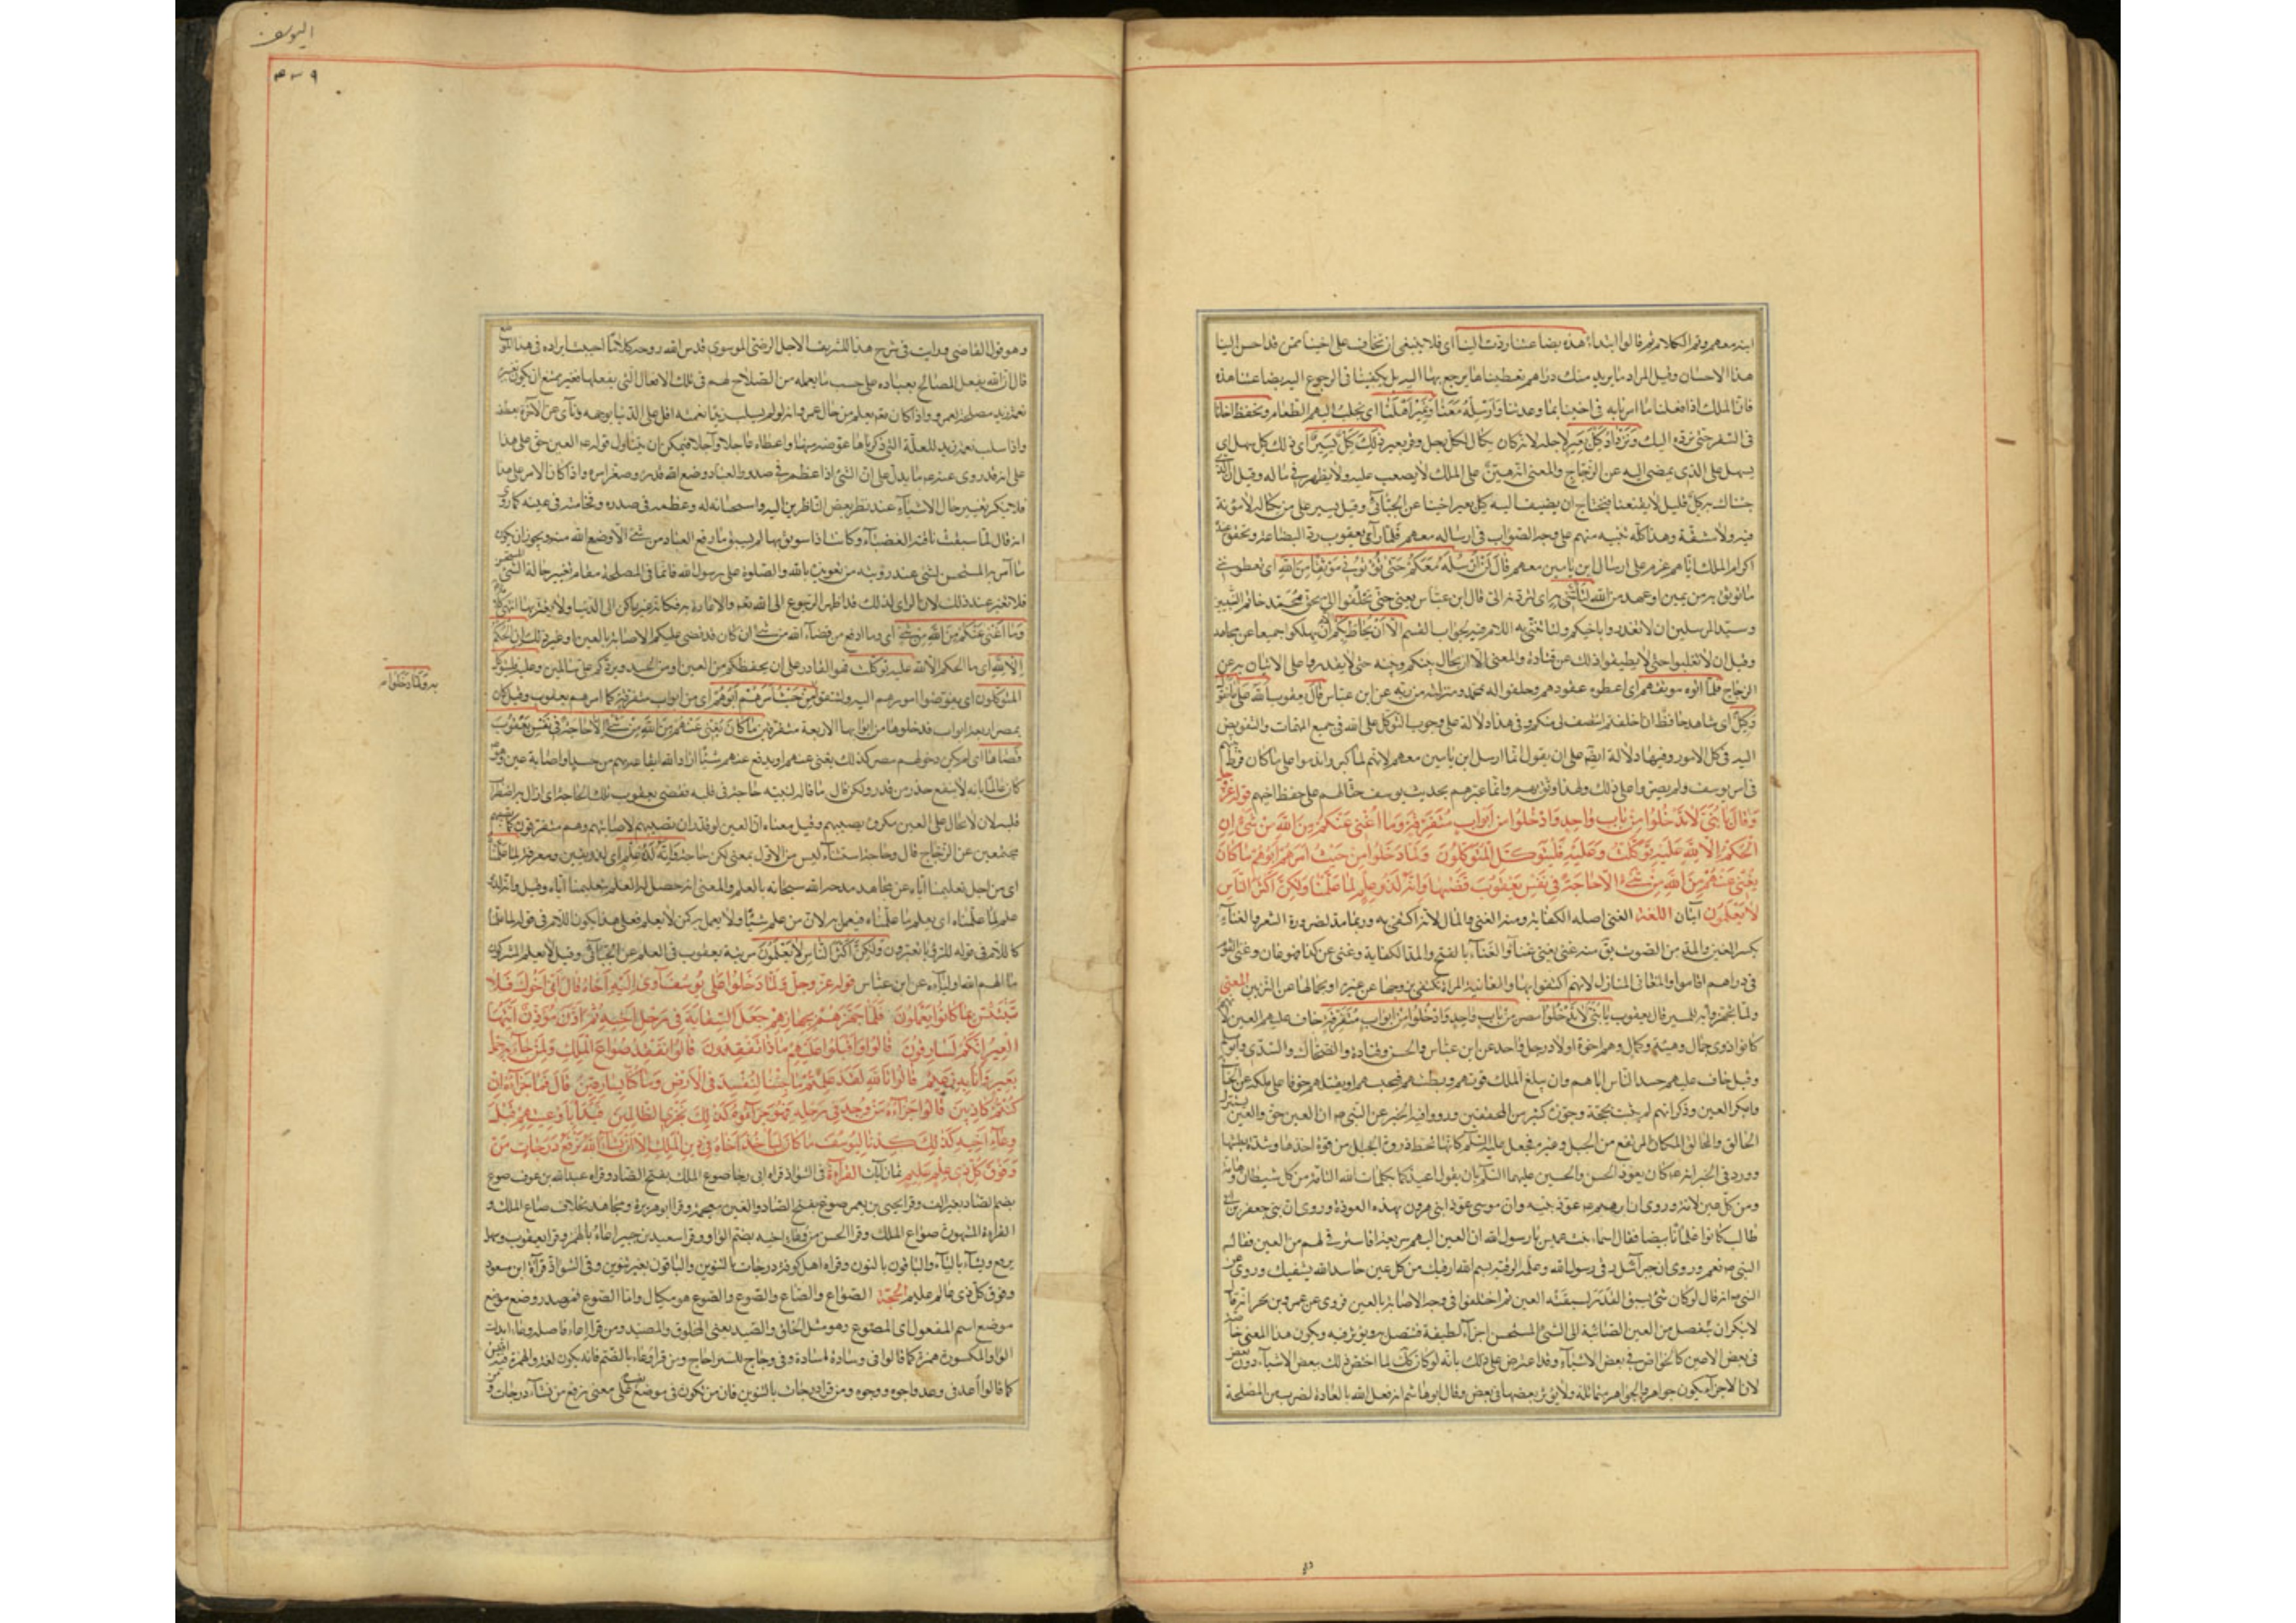 ابنه معهم وتم الكلام ثم قالوا ابتداء هذه بضاعتنا ردت الينا اى فلا ينبغى ان تخاف على اخينا ممن قد احسن الينا
هذا الاحسان وقيل المراد ما نريد منك دراهم تعطيناها نرجع بها اليه بل يكفينا فى الرجوع اليه بضاعتنا هذه
فان الملك اذا فعلنا ما امرنا به فى اخينا بما وعدتنا وارسله معنا ونمير اهلنا اى نجلب اليهم الطعام ونحفظ اخانا
فى السفر حتى نرده اليك ونزداد كيل بعير لاجله لانه كان يكال لكل رجل وقر بعير ذلك كيل يسير اى ذلك كيل سهل اى
يسهل على الذى يمضى اليه عن الزجاج والمعنى انه هين على الملك لا يصعب عليه ولا يظهر فى ماله وقيل ان الذى
جئناك به كيل قليل لا يقنعنا فنحتاج ان نضيف اليه كيل بعير اخينا عن الجبائى وقيل يسير على من يكتاله لا مؤنة
فيه ولا مشقة وهذا كله تنبيه منهم على وجه الصواب فى ارساله معهم فلما رآى يعقوب رد البضاعة وتحقق عنده
اكرام الملك اياهم عزم على ارسال ابن يامين معهم قال لن ارسله معكم حتى تؤتون موثقا من الله اى تعطونى
ما يوثق به من يمين او عهد من الله لتاتننى به اى لتردنه الى قال ابن عباس يعنى حتى تحلفوا لى بحق محمد خاتم النبيين
وسيد المرسلين ان لا تغدروا باخيكم ولتاتننى به اللام فيه لجواب القسم الا ان يحاط بكم اى ان تهلكوا جميعا عن مجاهد
وقيل ان لا تغلبوا حتى لا تطيقوا ذلك عن قتادة والمعنى الا ان يحال بينكم وبينه حتى لا تقدروا على الاتيان به عن
الزجاج فلما اتوه موثقهم اى اعطوه عقودهم وحلفوا له بمحمد ومنزلته من ربه عن ابن عباس قال يعقوب الله على ما نقول
وكيل اى شاهد حافظ ان اخلفتم انتصف لى منكم وفى هذا دلالة على وجوب التوكل على الله فى جميع المهمات والتفويض
اليه فى كل الامور وفيها دلالة ايضا على ان يعقول انما ارسل ابن يامين معهم لانهم لما كبروا ندموا على ما كان فرط منهم
فى امر يوسف ولم يصروا على ذلك ولهذا وثق بهم وانما عيرهم بحديث يوسف حثا لهم على حفظ اخيهم قوله عز وجل
وقال يا بنى لا تدخلوا من باب واحد وادخلوا من ابواب متفرقة وما اغنى عنكم من الله من شئ ان
الحكم الا لله عليه توكلت وعليه فليتوكل المتوكلون ولما دخلوا من حيث امرهم ابوهم ما كان
يغنى عنهم من الله من شئ الا حاجة فى نفس يعقوب قضيها وانه لذو علم لما علمناه ولكن اكثر الناس
لا يعلمون ايتان اللغة الغنى اصله الكفاية ومنه الغنى والمال لانه اكتفى به وربما مد لضرورة الشعر والغناء
بكسر الغين والمد من الصوت يق منه غنى يغنى غناء والغناء بالفتح والمد الكفاية وغنى عن كذا فهو غان وغنى القوم
فى دراهم اقاموا والمغانى المنازل لانهم اكتفوا بها والغانية المراة تكتفى بزوجها عن غيره او بجمالها عن التزين المعنى
ولما تجهزوا للمسير قال يعقوب يا بنى لا تدخلوا مصر من باب واحد وادخلوا من ابواب متفرقة خاف عليهم العين لانهم
كانوا ذوى جمال وهيئة وكمال وهم اخوة اولاد رجل واحد عن ابن عباس والحسن وقتادة والضحاك والسدى وابو مسلم
وقيل خاف عليهم حسد الناس اياهم وان يبلغ الملك قوتهم وبطشهم فيحبسهم او يقتلهم خوفا على ملكه عن الجبائى
وانكر العين وذكر انه لم يثبت بحجة وجوزه كثير من المحققين ورووا فيه الخبر عن النبى ص ان العين حق والعين تستنزل
الحالق والحالق المكان المرتفع من الجبل وغيره فجعل عليه السلم كانها تحط ذروة الجبل من قوة اخذها وشدة بطشها
وورد فى الخبر انه ع كان يعوذ الحسن والحسين عليهما السلام بان يقول اعيذكما بكلمات الله التامة من كل شيطان وهامة
ومن كل عين لامة وروى ان ابرهيم ع عوذ ابنيه وان موسى عوذ ابنى هرون بهذه العوذة وروى ان بنى جعفر بن ابى
طالب كانوا غلمانا بيضا فقالت اسماء بنت عميس يا رسول الله ان العين اليهم سريعة افاسترقى لهم من العين فقال
النبى ص نعم وروى ان جبرائيل رقى رسول الله وعلمه الرقية بسم الله ارقيك من كل عين حاسد الله يشفيك وروى عن
النبى ص انه قال لو كان شئ يسبق القدر لسبقته العين ثم اختلفوا فى وجه الاصابة بالعين فروى عن عمرو بن بحر انه قال
لا ينكر ان ينفصل من العين الصائبة الى الشئ المستحسن اجزاء لطيفة فتتصل به ويؤثر فيه ويكون هذا المعنى خاصية
فى بعض الاعين كالخواص فى بعض الاشياء وقد اعترض على ذلك بانه لو كان كك لما اختص ذلك ببعض الاشياء دون بعض
لان الاجزاء يكون جواهر والجواهر متماثلة ولا يؤثر بعضها فى بعض وقال ابو هاشم انه فعل الله بالعادة لضرب من المصلحة
اليوسف
٣٣٩
وهو قول القاضى ورايت فى شرح هذا للشريف الاجل الرضى الموسوى قدس الله روحه كلاما احببت ايراده فى هذا الموضع
قال ان الله يفعل المصالح بعباده على حسب ما يعلمه من الصلاح لهم فى تلك الافعال التى يفعلها فغير ممتنع ان يكون تغييره
نعمة زيد مصلحة لعمرو واذا كان تعم يعلم من حال عمرو انه لو لم يسلب زيدا نعمته اقبل على الدنيا بوجهه وناى عن الاخرة بعطفه
واذا سلب نعمة زيد للعلة التى ذكرناها عوضه منها واعطاه عاجلا وآجلا فيمكن ان يتناول قوله ع العين حق على هذا
على انه قد روى عنه ع ما يدل على ان الشئ اذا عظم فى صدور العباد وضع الله قدره وصغر امره واذا كان الامر على هذا
فلا ينكر تغيير حال الاشياء عند نظر بعض الناظرين اليه واستحسانه له وعظمه فى صدره وفخامته فى عينه كما روى
انه قال لما سبقت ناقته الغضباء وكانت اذا سوبق بها لم يسبق ما رفع العباد من شئ الا وضع الله منه ويجوز ان يكون
ما امر به المستحسن لشئ عند رؤيته من تعويذه بالله والصلوة على رسول الله قائما فى المصلحة مقام تغيير حالة الشئ المستحسن
فلا تغير عند ذلك لان الراى لذلك قد اظهر الرجوع الى الله تعم والاعاذة به فكانه غير راكن الى الدنيا ولا مغتر بها انتهى كلامه
وما اغنى عنكم من الله من شئ اى وما ادفع من قضاء الله من شئ ان كان قد قضى عليكم الاصابة بالعين او غير ذلك ان الحكم
الا لله اى ما الحكم الا لله عليه توكلت فهو القادر على ان يحفظكم من العين او من الحسد ويردكم على سالمين وعليه فليتوكل
المتوكلون اى ليفوضوا امورهم اليه وليثقوا به من حيث امرهم ابوهم اى من ابواب متفرقة كما امرهم يعقوب وقيل كان
بمصر اربعة ابواب فدخلوها من ابوابها الاربعة متفرقين ما كان يغنى عنهم من الله من شئ الا حاجة فى نفس يعقوب
قضاها اى لم يكن دخولهم مصر كذلك يغنى عنهم او يدفع عنهم شيئا اراد الله ايقاعه بهم من حسد او اصابة عين وهو ع
كان عالما بانه لا ينفع حذر من قدر ولكن قال ما قاله لبنيه حاجة فى قلبه فقضى يعقوب تلك الحاجة اى ازال به اضطراب
قلبه لان لا يحال على العين مكروه يصيبهم وقيل معناه ان العين لو قدر ان تصيبهم لاصابتهم وهم متفرقون كما تصيبهم
مجتمعين عن الزجاج قال وحاجة استثناء ليس من الاول بمعنى لكن حاجة وانه لذو علم اى لذو يقين ومعرفة لما علمناه
اى من اجل تعليمنا اياه عن مجاهد مدحه الله سبحانه بالعلم والمعنى انه حصل له العلم بتعليمنا اياه وقيل وانه لذو
علم لما علمناه اى يعلم ما علمناه فيعمل به لان من علم شيئا ولا يعمل به كمن لا يعلم فعلى هذا يكون اللام فى قوله لما علمناه
كاللام فى قوله للرؤيا تعبرون ولكن اكثر الناس لا يعلمون مرتبة يعقوب فى العلم عن الجبائى وقيل لا يعلم المشركون
ما الهم الله اولياءه عن ابن عباس قوله عز وجل ولما دخلوا على يوسف آوى اليه اخاه قال انى انا اخوك فلا
تبتئس بما كانوا يعملون فلما جهزهم بجهازهم جعل السقاية فى رحل اخيه ثم اذن مؤذن ايتها
العير انكم لسارقون قالوا واقبلوا عليهم ماذا تفقدون قالوا نفقد صواع الملك ولمن جاء به حمل
بعير وانا به زعيم قالوا تالله لقد علمتم ما جئنا لنفسد فى الارض وما كنا سارقين قال فما جزاؤه ان
كنتم كاذبين قالوا جزاؤه من وجد فى رحله فهو جزاؤه كذلك نجزى الظالمين فبدا باوعيتهم قبل
وعاء اخيه كذلك كدنا ليوسف ما كان لياخذ اخاه فى دين الملك الا ان يشاء الله نرفع درجات من
وفوق كل ذى علم عليم ثمان آيات القراءة فى الشواذ قراءة ابى رجا صوع الملك بفتح الصاد وقراء عبد الله بن عوف صوع
بضم الصاد بغير الف وقرا يحيى بن يعمر صوغ بفتح الصاد والغين معجمة وقرا ابو هريرة ومجاهد بخلاف صاع الملك و
القراءة المشهورة صواع الملك وقرا الحسن من وعاء اخيه بضم الواو وقرا سعيد بن جبير اعاء بالهمز وقرا يعقوب وسهل
يرفع ويشاء بالياء والباقون بالنون وقراء اهل كوفة درجات بالتنوين والباقون بغير تنوين وفى الشواذ قراءة ابن مسعود
وفوق كل ذى عالم عليم الحجة الصواع والصاع والصوع والصوع هو مكيال واما الصوغ فمصدر وضع موضع
موضع اسم المفعول اى المصوغ وهو مثل الخلق والصيد يعنى المخلوق والمصيد ومن قرا اعاء فاصله وعاء ابدلت
الواو المكسورة همزة كما قالوا فى وسادة اسادة وفى وجاج للستر اجاج ومن قرا وعاء بالضم فانه يكون لغة والهمزة فيه اقيس
كما قالوا اعد فى وعد واجوه ووجوه ومن قرا درجات بالتنوين فان من تكون فى موضع نصب على معنى نرفع من نشاء درجات
ولما دخلوا